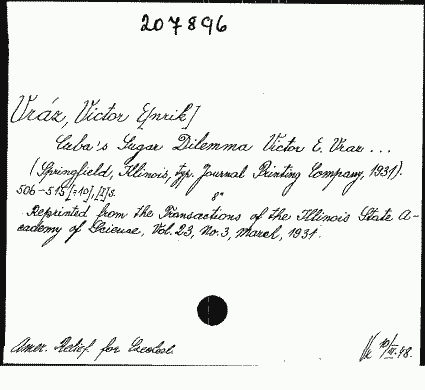 207896
Vráz, Victor E[nrik]
Cuba's Sugar Dilemma Victor E. Vraz ...
(Springfield, Illinois, typ. Journal Printing Company, 1931).
506-515 [=10], [1] s. 8°
Reprinted from the Transactions of the Illinois State A-
cademy of Science, Vol. 23, No. 3, March, 1931.
Amer. Relief for Czechosl.
10/III.48.